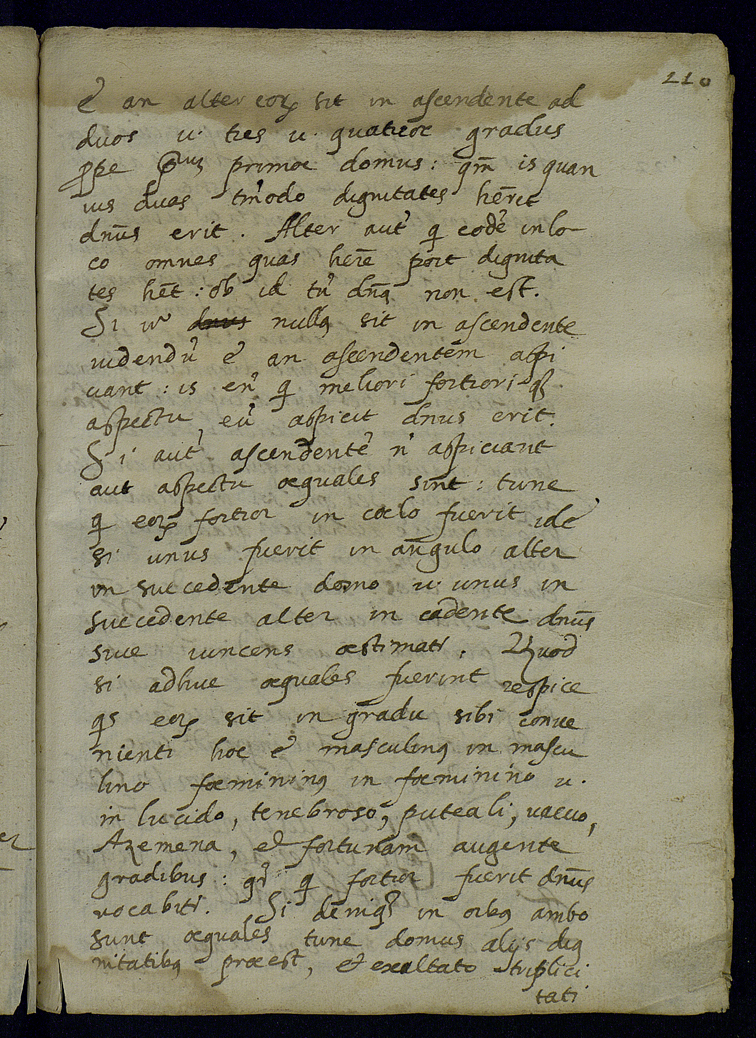 110
ē an alter eorꝝ sit in ascendente ad
duos u. tres u. quatuor gradus
prope primae domus: qm̄ is quan
uis duas tm̄odo dignitates hēret
dn̄us erit. Alter aut̄ q̄ eodē in lo-
co omnes quas hēre pōt dignita
tes hēt: ob id tn̄ dn̄q non est.
Si u° dnus nullq sit in ascendente
uidendū ē an ascendentem aspi
ciant: is en̄ q̄ meliori fortiori q̄
aspectu eū aspicit dnus erit.
Si aut̄ ascendentē n̄ aspiciant
aut aspectu æquales sint: tunc
q̄ eorꝝ fortior in coelo fuerit idē
si unus fuerit in angulo alter
in succedente domo u. unus in
succedente alter in cadente dn̄us
siue uincens æstimatr. Quod
si adhuc æquales fuerint respice
q̄s eorꝝ sit in gradu sibi conue
nienti hoc ē masculinq in mascu
lino foemininq in foeminino u.
in lucido, tenebroso, puteali, uacuo,
Azemena, et fortunam augente
gradibus: qr̄ q̄ fortior fuerit dn̄us
vocabitr. Si deniq̄ in oībq ambo
sunt æquales tunc domus alijs dig
nitatibq præest, et exaltatō triplici
tati